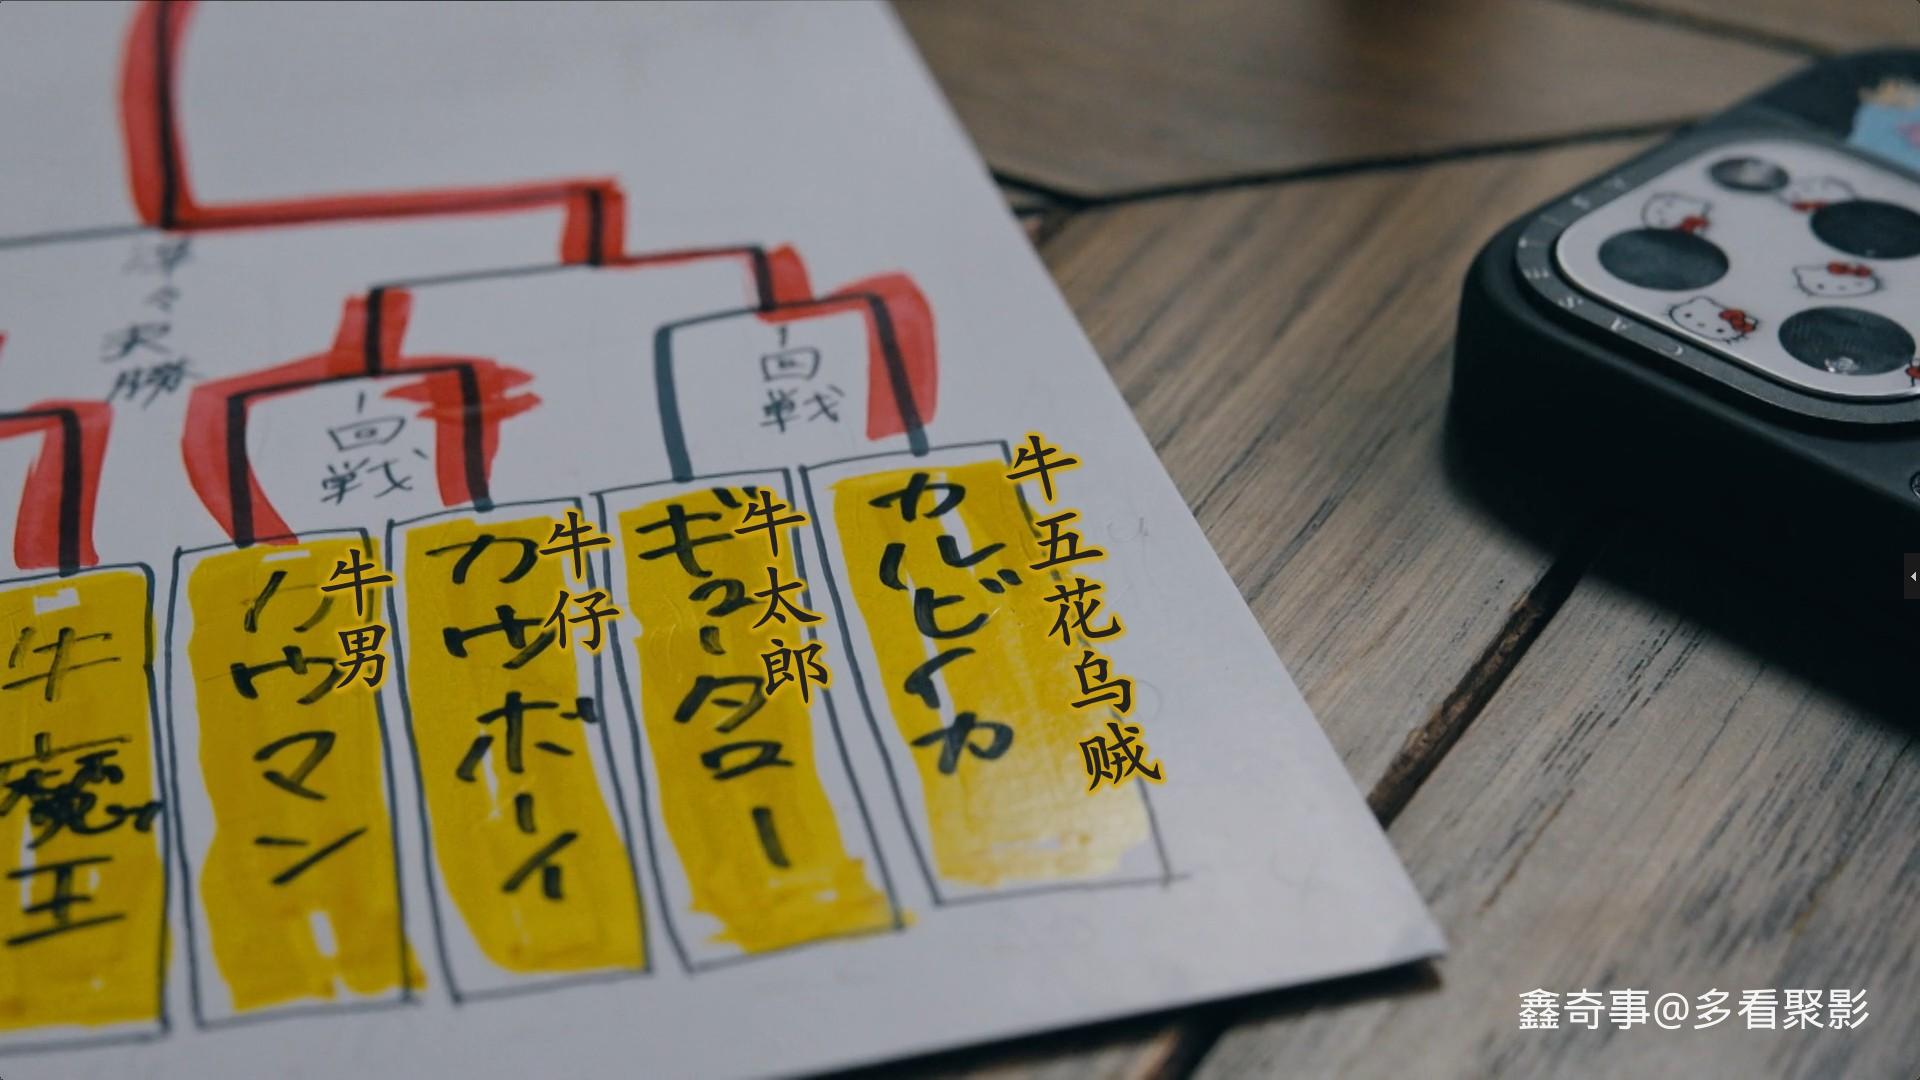 準々決勝
一回戦
一回戦
カルビイカ
牛五花乌贼
ギュータロー
牛太郎
カウボーイ
牛仔
カウマン
牛男
牛魔王
鑫奇事@多看聚影